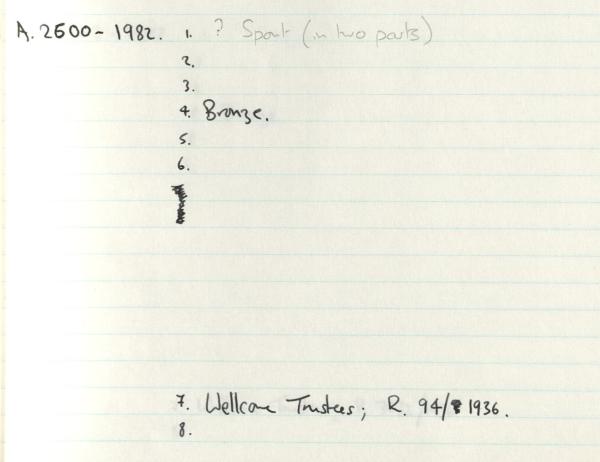 A. 2600-1982. 1. ? Spout (in two parts)
2.
3.
4. Bronze.
5.
6.
7. Wellcome Trustees; R. 94/1936.
8.